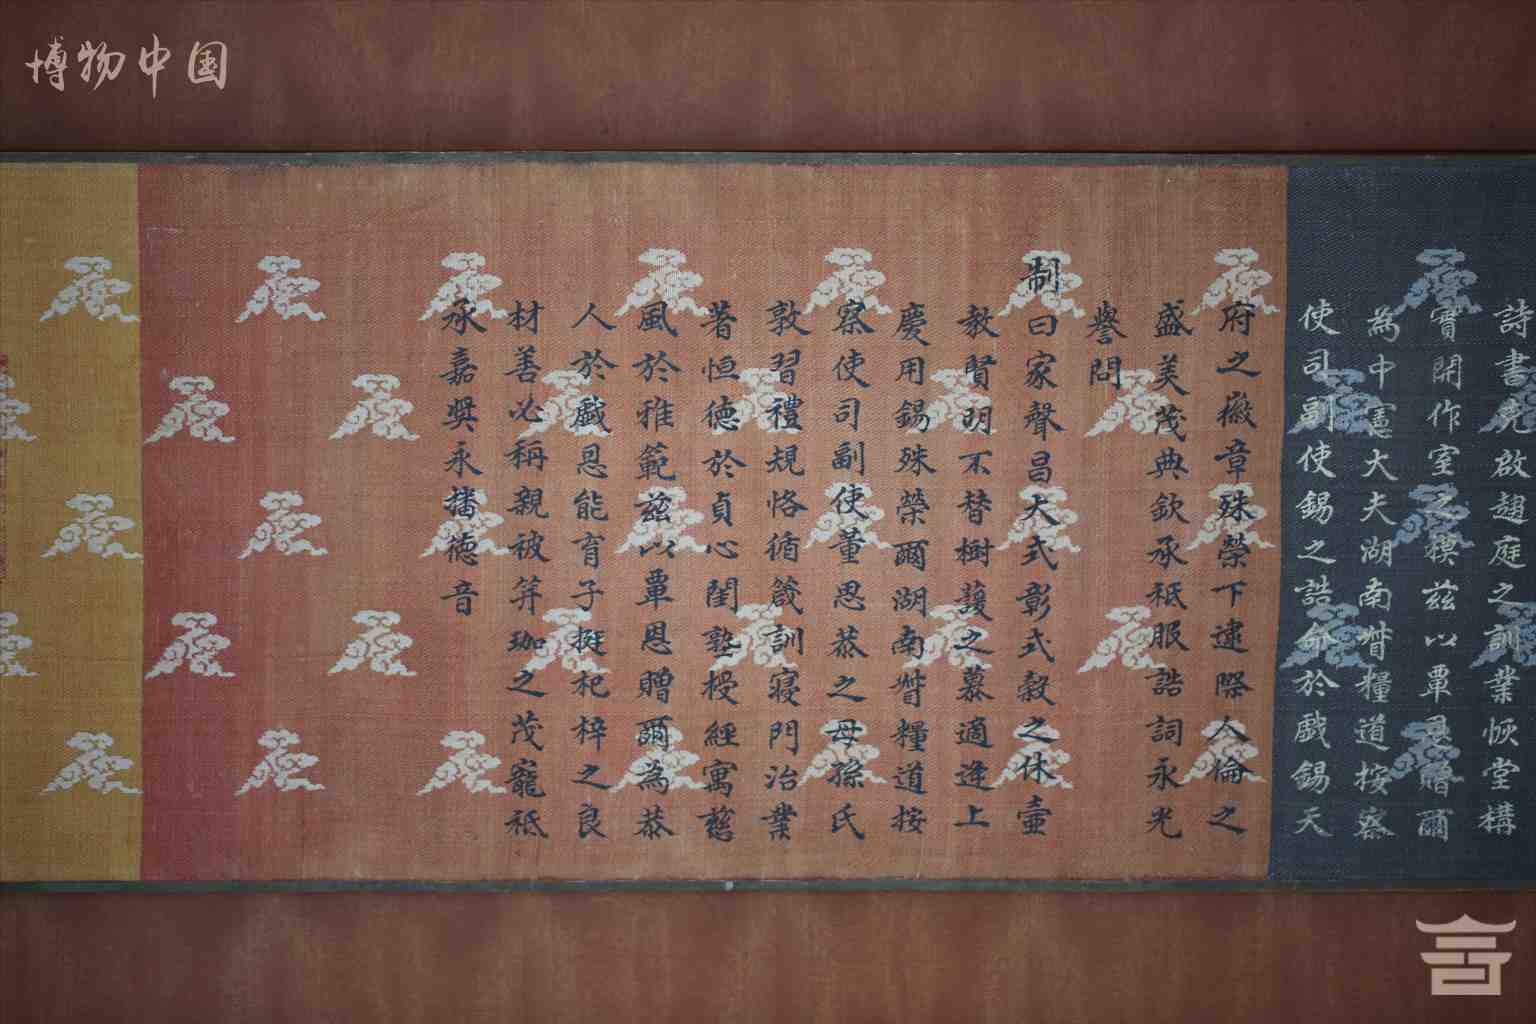 博物中国
詩書克啟趨庭之訓業恢堂構
實開作室之模茲以覃恩贈爾
為中憲大夫湖南督糧道按察
使司副使錫之誥命於戲錫天
府之徽章殊榮下逮際人倫之
盛美茂典欽承祗服誥詞永光
譽問
制曰家聲昌大式彰式穀之休壼
教賢明不替樹護之慕適逢上
慶用錫殊榮爾湖南督糧道按
察使司副使董思恭之母孫氏
敦習禮規恪循箴訓寢門治業
著恒德於貞心閨塾授經寓慈
風於雅範茲以覃恩贈爾為恭
人於戲恩能育子挺杞梓之良
材善必稱親被笄珈之茂寵祗
承嘉獎永播德音